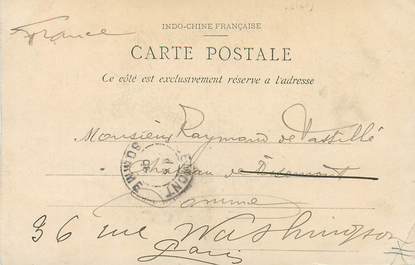 France
INDO-CHINE FRANÇAISE
CARTE POSTALE
Ce côté est exclusivement réservé a l'adresse
Monsieur Raymond de
Château de
Somme
36 rue Washington
Paris
SOMME